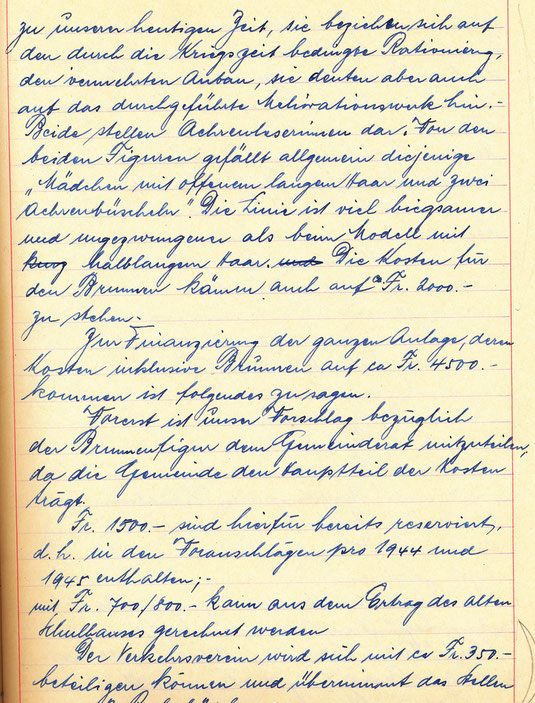 zu unserer heutigen Zeit, sie beziehen sich auf
den durch die Kriegszeit bedingte Rationierg,
den vermehrten Anbau, sie deuten aber auch
auf das durchgeführte Meliorationswerk hin.-
Beide stellen Aehrenleserinnen dar. Von den
beiden Figuren gefällt allgemein diejenige
„Mädchen mit offenem langen Haar und zwei
Aehrenbüscheln". Die Linie ist viel biegsamer
und ungezwungener als beim Modell mit
kurz halblangem Haar. und Die Kosten für
den Brunnen kämen auch auf ca Fr. 2000.-
zu stehen.
Zur Finanzierung der ganzen Anlage, deren
Kosten inklusive Brunnen auf ca Fr. 4500.-
kommen ist folgendes zu sagen.
Vorerst ist unser Vorschlag bezüglich
der Brunnenfigur dem Gemeinderat mitzuteilen,
da die Gemeinde den Hauptteil der Kosten
trägt.
Fr. 1500.- sind hierfür bereits reserviert,
d.h. in den Voranschlägen pro 1944 und
1945 enthalten;-
mit Fr. 700/800.- kann aus dem Ertrag des alten
Schulhauses gerechnet werden
Der Verkehrsverein wird sich mit ca Fr. 350.-
beteiligen können und übernimmt das Stellen